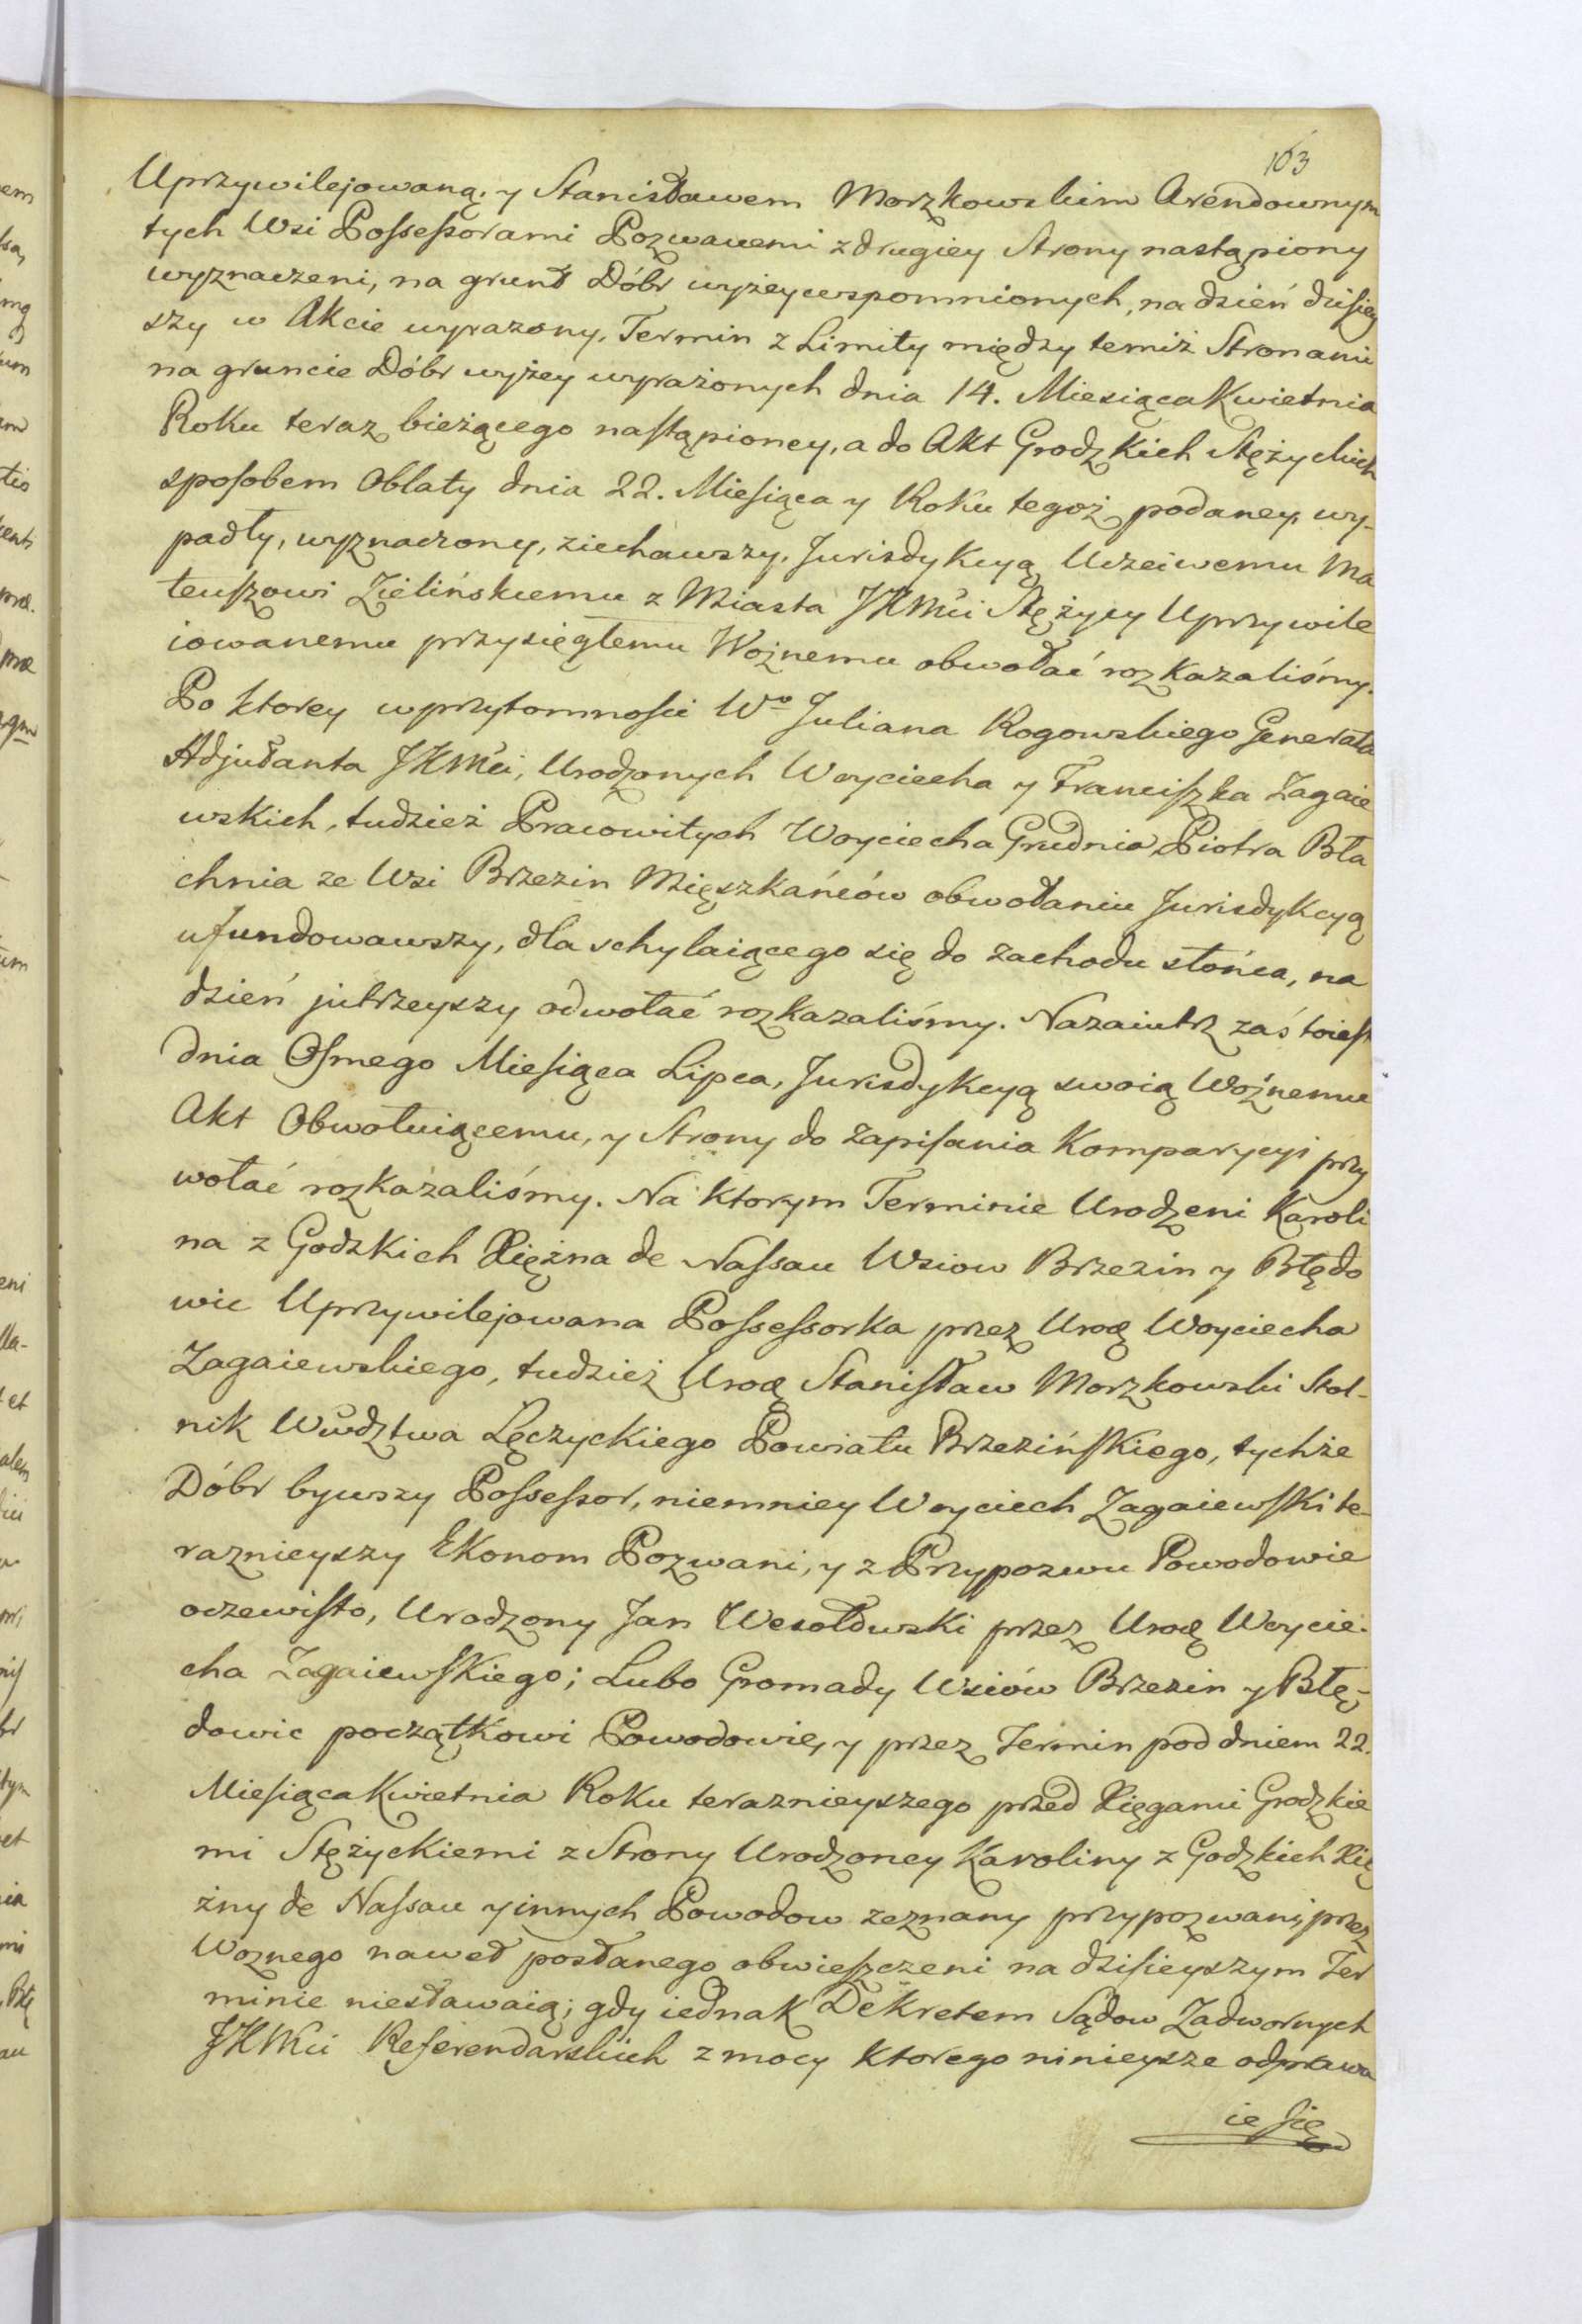 163
Uprzywilejowaną, y Stanisławem Morzkowskim Arendownym
tych Wsi Possessorami Pozwanemi z drugiey Strony nastąpiony
wyznaczeni, na grunt Dóbr wyżeywspomnionych, na dzień dzisiey
szy w Akcie wyrazony, Termin z Limity między temiż Stronami
na gruncie Dóbr wyżey wyrażonych dnia 14. Miesiąca Kwietnia
Roku teraz bieżącego nastąpioney, a do Akt Grodzkich Stężyckich
sposobem Oblaty dnia 22. Miesiąca y Roku tegoż podaney, wy-
padły, wyznaczony, ziechawszy, Jurisdykcyą Uczciwemu Ma
teuszowi Zielińskiemu z Miasta JKMci Stężycy Uprzywile
iowanemu przysięgłemu Woznemu obwołać rozkazaliśmy.
Po ktorey w przytomnosci Wo Juliana Rogowskiego Generała
Adjutanta JKMci, Urodzonych Woyciecha y Franciszka Zagaie
wskich, tudzież Pracowitych Woyciecha Grudnia Piotra Bła
chnia ze Wsi Brzezin Mięszkańców obwołaniu Jurisdykcyą
ufundowawszy, dla schylaiącego się do zachodu słońca, na
dzień jutrzeyszy odwołać rozkazaliśmy. Nazaiutrz zaś toiest
dnia Osmego Miesiąca Lipca, Jurisdykcyą swoią Woźnemu
Akt Obwołuiącemu, y Strony do zapisania Komparycyi przy
wołać rozkazaliśmy. Na ktorym Terminie Urodzeni Karoli
na z Godzkich Xiężna de Nassau Wsiow Brzezin y Błędo
wic Uprzywilejowana Possessorka przez Urodz Woyciecha
Zagaiewskiego, tudzież Urodz Stanisław Morzkowski Stol-
nik Wwdztwa Łęczyckiego Powiatu Brzezińskiego, tychże
Dóbr bywszy Possessor, niemniey Woyciech Zagaiewski te-
raznieyszy Ekonom Pozwani, y z Przypozwu Powodowie
oczewisto, Urodzony Jan Wesołowski przez Urodz Woycie-
cha Zagaiewskiego; Lubo Gromady Wsiów Brzezin y Błę-
dowic początkowi Powodowie, y przez Termin pod dniem 22.
Miesiąca Kwietnia Roku teraznieyszego przed Xięgami Grodzkie
mi Stężyckiemi z Strony Urodzoney Karoliny z Godzkich Xię
żny de Nassau y innych Powodow zeznany przypozwani, przez
Woznego nawet posłanego obwieszczeni na dzisieyszym Ter
minie niestawaią; gdy iednak Dekretem Sądow Zadwornych
JKMci Referendarskich z mocy ktorego ninieysze odprawa
ie się